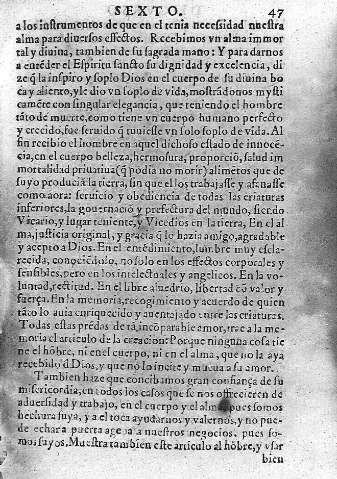 SEXTO. 47
a los instrumentos de que en el tenia necessidad nuestra
alma para diuersos effectos. Recebimos vn alma immor
tal y diuina, tambien de su sagrada mano: Y para darnos
a entẽder el Espiritu sancto su dignidad y excelencia, di
ze q̃ la inspiro y soplo Dios en el cuerpo de su diuina bo
ca y aliento, y le dio vn soplo de vida, mostrãdonos mysti
camẽte con singular elegancia, que teniendo el hombre
tãto de muerte, como tiene vn cuerpo humano perfecto
y crecido, fue seruido q̃ tuuiesse vn solo soplo de vida. Al
fin recibio el hombre en aquel dichoso estado de innocẽ
cia, en el cuerpo belleza, hermosura, proporciõ, salud im
mortalidad priuatiua (q̃ podia no morir) alimẽtos que de
suyo producia la tierra, sin que el los trabajasse y afanasse
como aora: seruicio y obediencia de todas las criaturas
inferiores, la gouernaciõ y prefectura del mundo, siẽdo
Vicario, y lugar teniente, y Vicedios en la tierra, En el al
ma, justicia original, y gracia q̃ lo hazia amigo, agradable
y acepto a Dios. En el entẽdimiẽto, lumbre muy escla-
recida, conociẽdolo, no solo en los effectos corporales y
sensibles, pero en los intelectuales y angelicos. En la vo-
luntad, rectitud. En el libre aluedrio, libertad cõ valor y
fuerça. En la memoria, recogimiento y acuerdo de quien
tãto lo auia enriquezido y auentajado entre las criaturas.
Todas estas prẽdas de tã incõparable amor, trae a la me-
moria el articulo de la creacion: Porque ninguna cosa tie
ne el hõbre, ni en el cuerpo, ni en el alma, que no la aya
recebido d̃ Dios, y que no lo incite y mueua a su amor.
Tambien haze que concibamos gran confiança de su
misericordia, en todos los casos que se nos offrecieren de
aduersidad y trabajo, en el cuerpo y el alma, pues somos
hechura suya, y a el toca ayudarnos y valernos, y no pue-
de echar a puerta agena a nuestros negocios, pues so-
mos suyos. Muestra tambien este articulo al hõbre, y vsar
bien